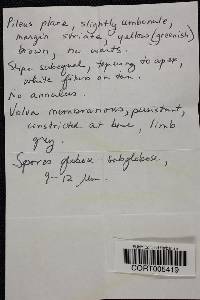 Pileus plane, slightly umbonate,
margin striate, yellow (greenish)
brown, no warts.
Stipe subequal, tapering to apex,
white fibrils on tan.
No annulus.
Volva membranous, persistent,
constricted at base, limb
grey.
Spores globose subglobose,
9-12 µm.
CORT005419